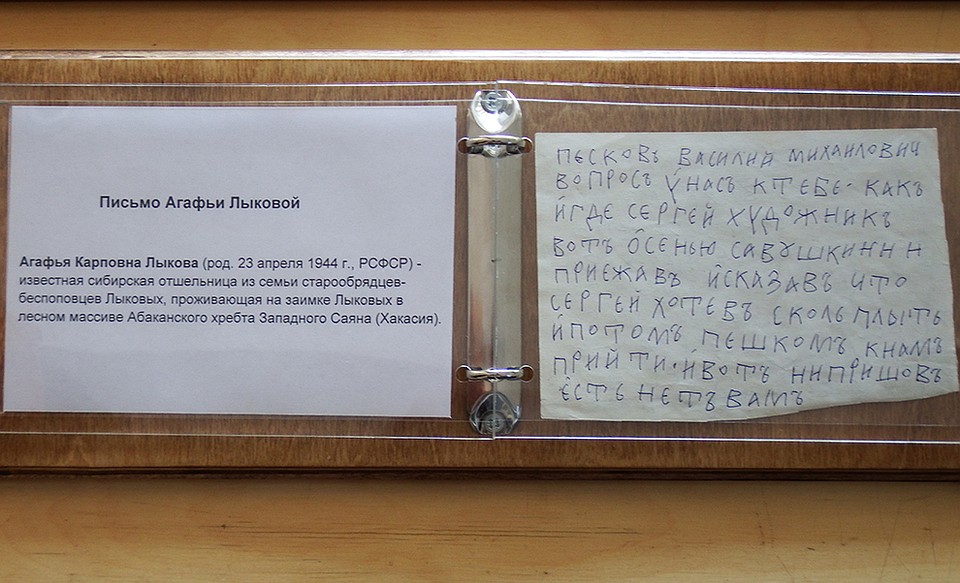 Письмо Агафьи Лыковой
Агафья Карповна Лыкова (род. 23 апреля 1944 г., РСФСР) -
известная сибирская отшельница из семьи старообрядцев-
беспоповцев Лыковых, проживающая на заимке Лыковых в
лесном массиве Абаканского хребта Западного Саяна (Хакасия).
ПЕСКОВЪ ВАСИЛИЙ МИХАИЛОВИЧ
ВОПРОСЪ У́НАСЪ КТЕБЕ· КАКЪ
И́ГДЕ СЕРГЕЙ ХУДОЖНИКЪ
ВОТЪ О́СЕНЬЮ САВУШКИНН Н
ПРИЕЖАВЪ И́СКАЗАВЪ ЧТО
СЕРГЕЙ ХОТЕВЪ СКОЛЬ ПЛЫТЬ
И́ПОТОМЪ ПЕШКОМЪ КНАМЪ
ПРИЙТИ· И́ВОТЪ НИПРИШОВЪ
Е́СТЬ НЕТЪ ВАМЪ